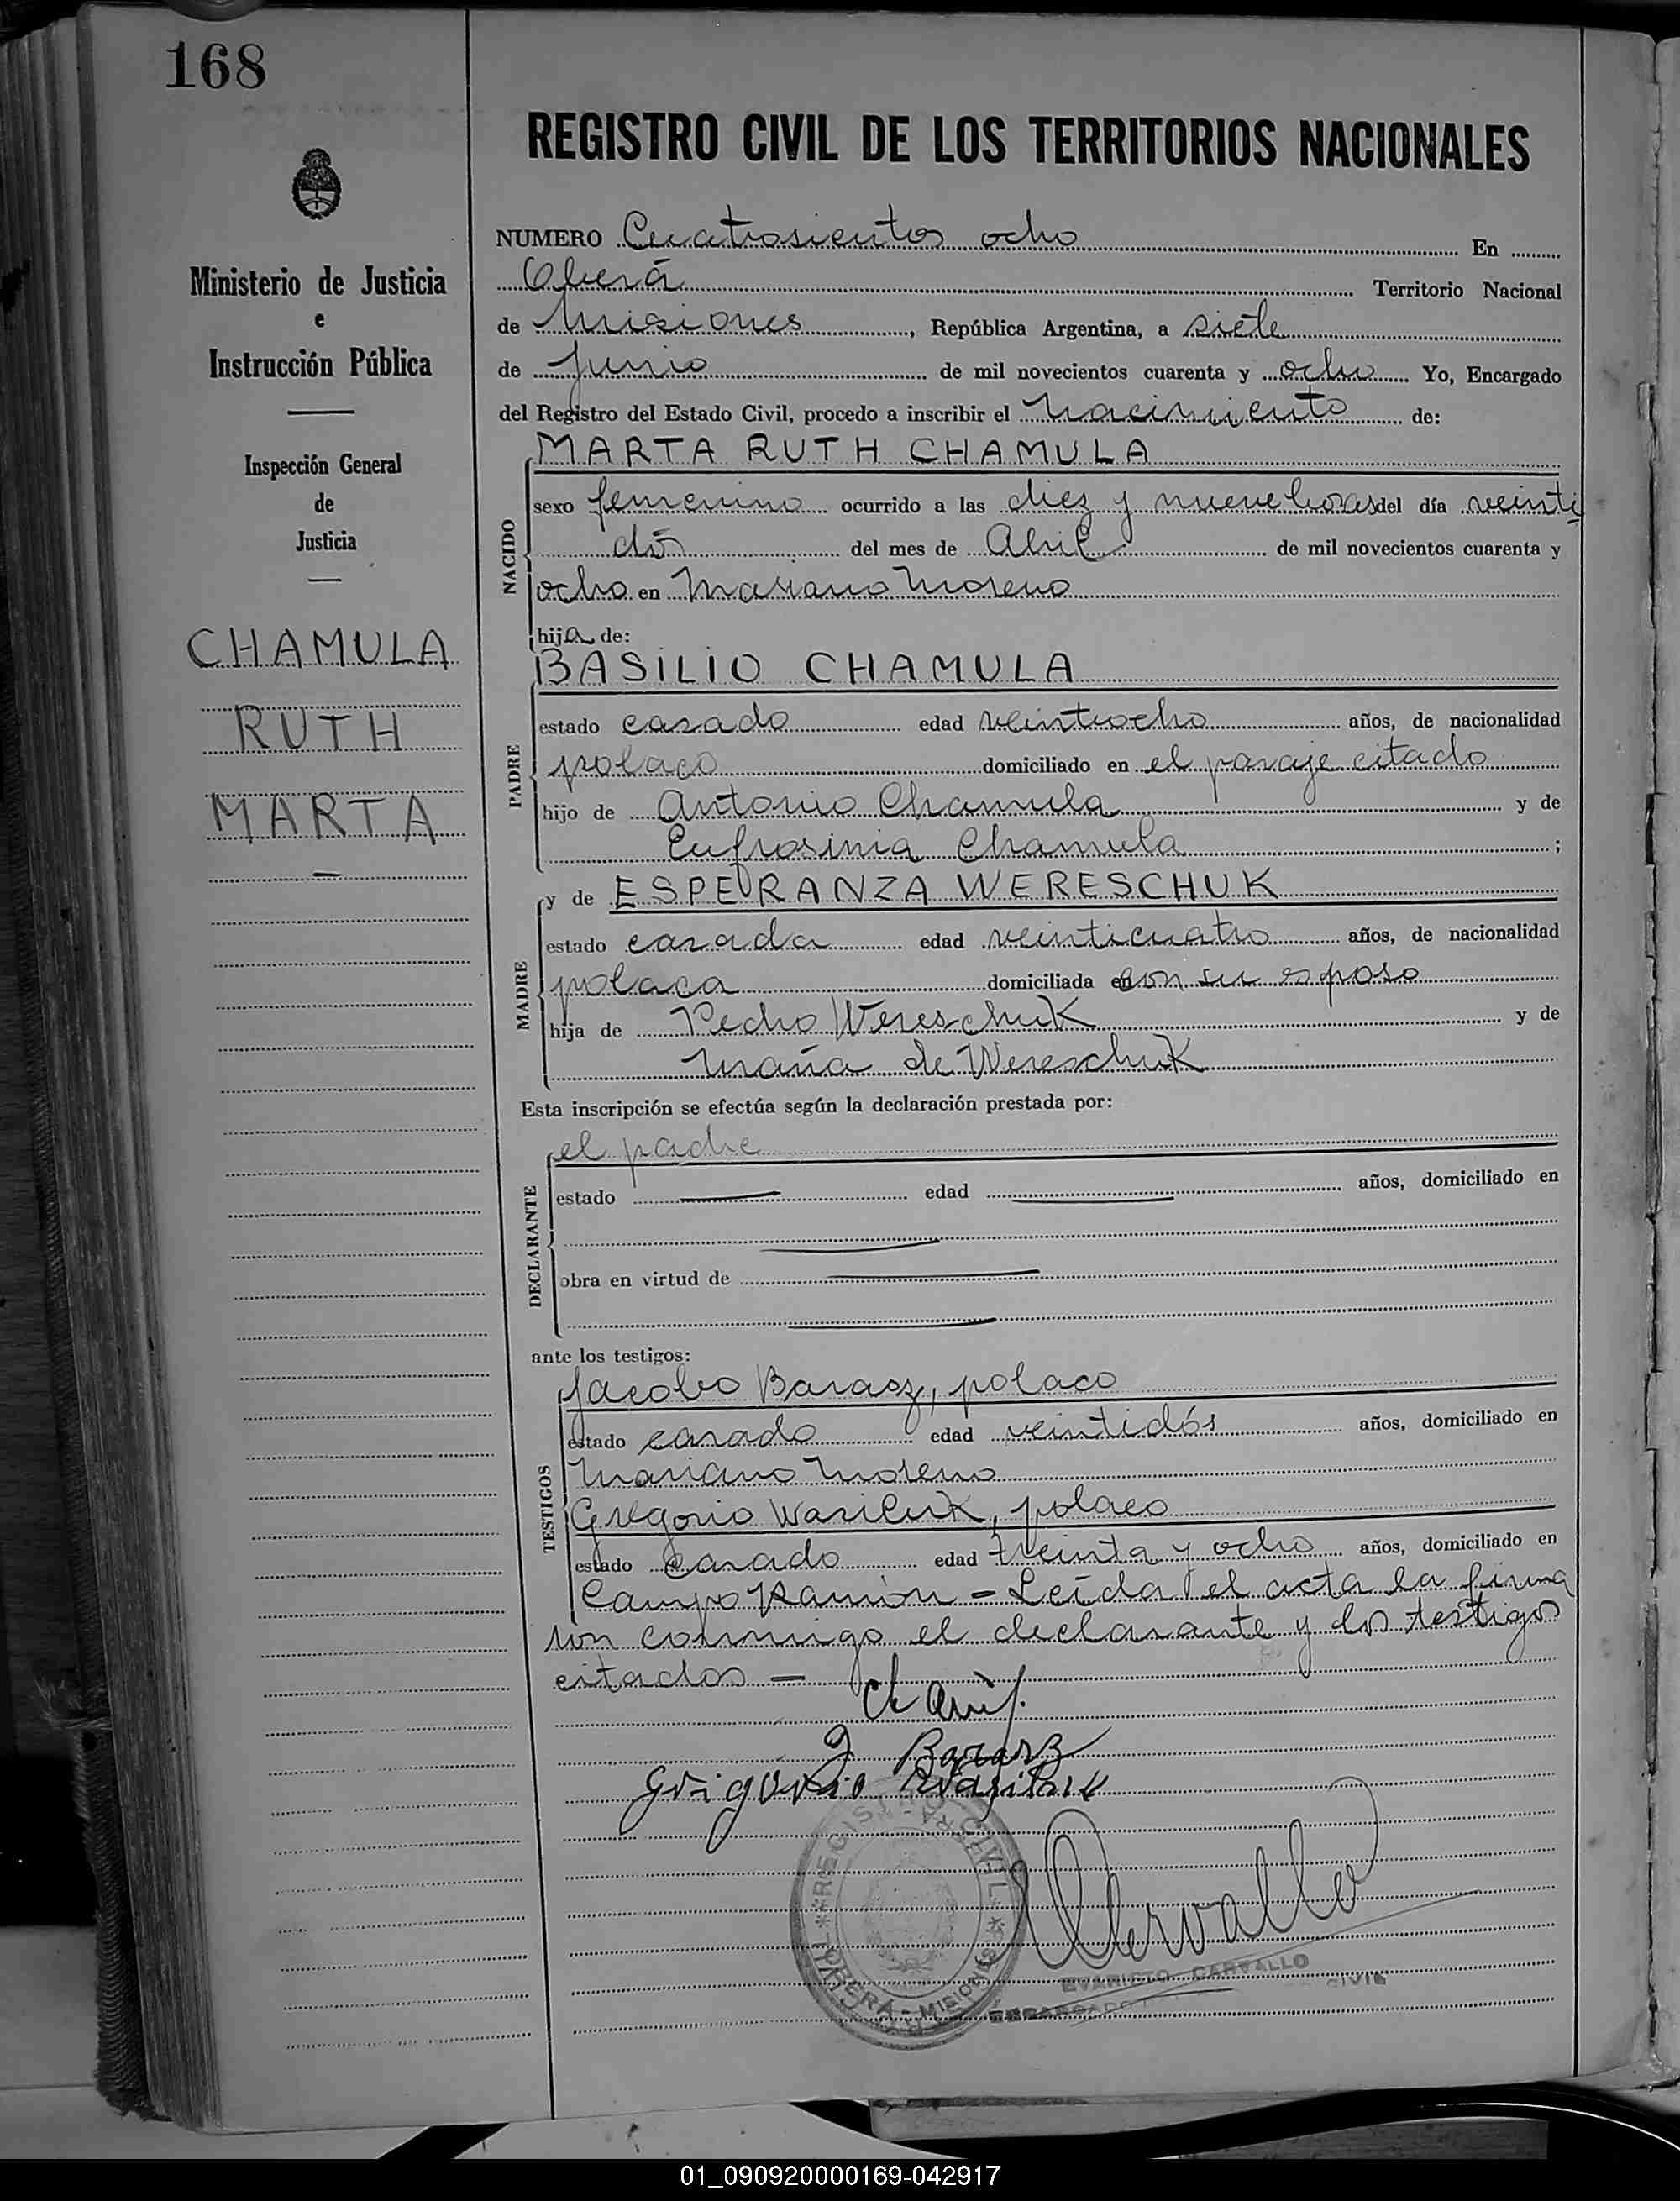 168
REGISTRO CIVIL DE LOS TERRITORIOS NACIONALES
Ministerio de Justicia
e
Instrucción Pública
Inspección General
de
Justicia
CHAMULA
RUTH
MARTA
NUMERO Cuatrosientos ocho En
Oberá Territorio Nacional
de Misiones, República Argentina, a siete
de junio de mil novecientos cuarenta y ocho Yo, Encargado
del Registro del Estado Civil, procedo a inscribir el nacimiento de:
MARTA RUTH CHAMULA
NACIDO
sexo femenino ocurrido a las diez y nueve horas del día veinti
dós del mes de Abril de mil novecientos cuarenta y
ocho en Mariano Moreno
hija de:
BASILIO CHAMULA
PADRE
estado casado edad veintiocho años, de nacionalidad
polaco domiciliado en el paraje citado
hijo de Antonio Chamula y de
Eufrosinia Chamula ;
y de ESPERANZA WERESCHUK
MADRE
estado casada edad veinticuatro años, de nacionalidad
polaca domiciliada en con su esposo
hija de Pedro Wereschuk y de
María de Wereschuk
Esta inscripción se efectúa según la declaración prestada por:
el padre
DECLARANTE
estado edad años, domiciliado en
obra en virtud de
ante los testigos:
Jacobo Barasz, polaco
TESTIGOS
estado casado edad veintidós años, domiciliado en
Mariano Moreno
Gregorio Wasiluk, polaco
estado casado edad treinta y ocho años, domiciliado en
Campo Ramón - Leída el acta la firma
ron conmigo el declarante y los testigos
citados -
J Barasz
Grigorio Wasiluk
REGISTRO CIVIL
OBERÁ - MISIONES
Carvallo
EVARISTO CARVALLO
ENCARGADO CIVIL
01_090920000169-042917